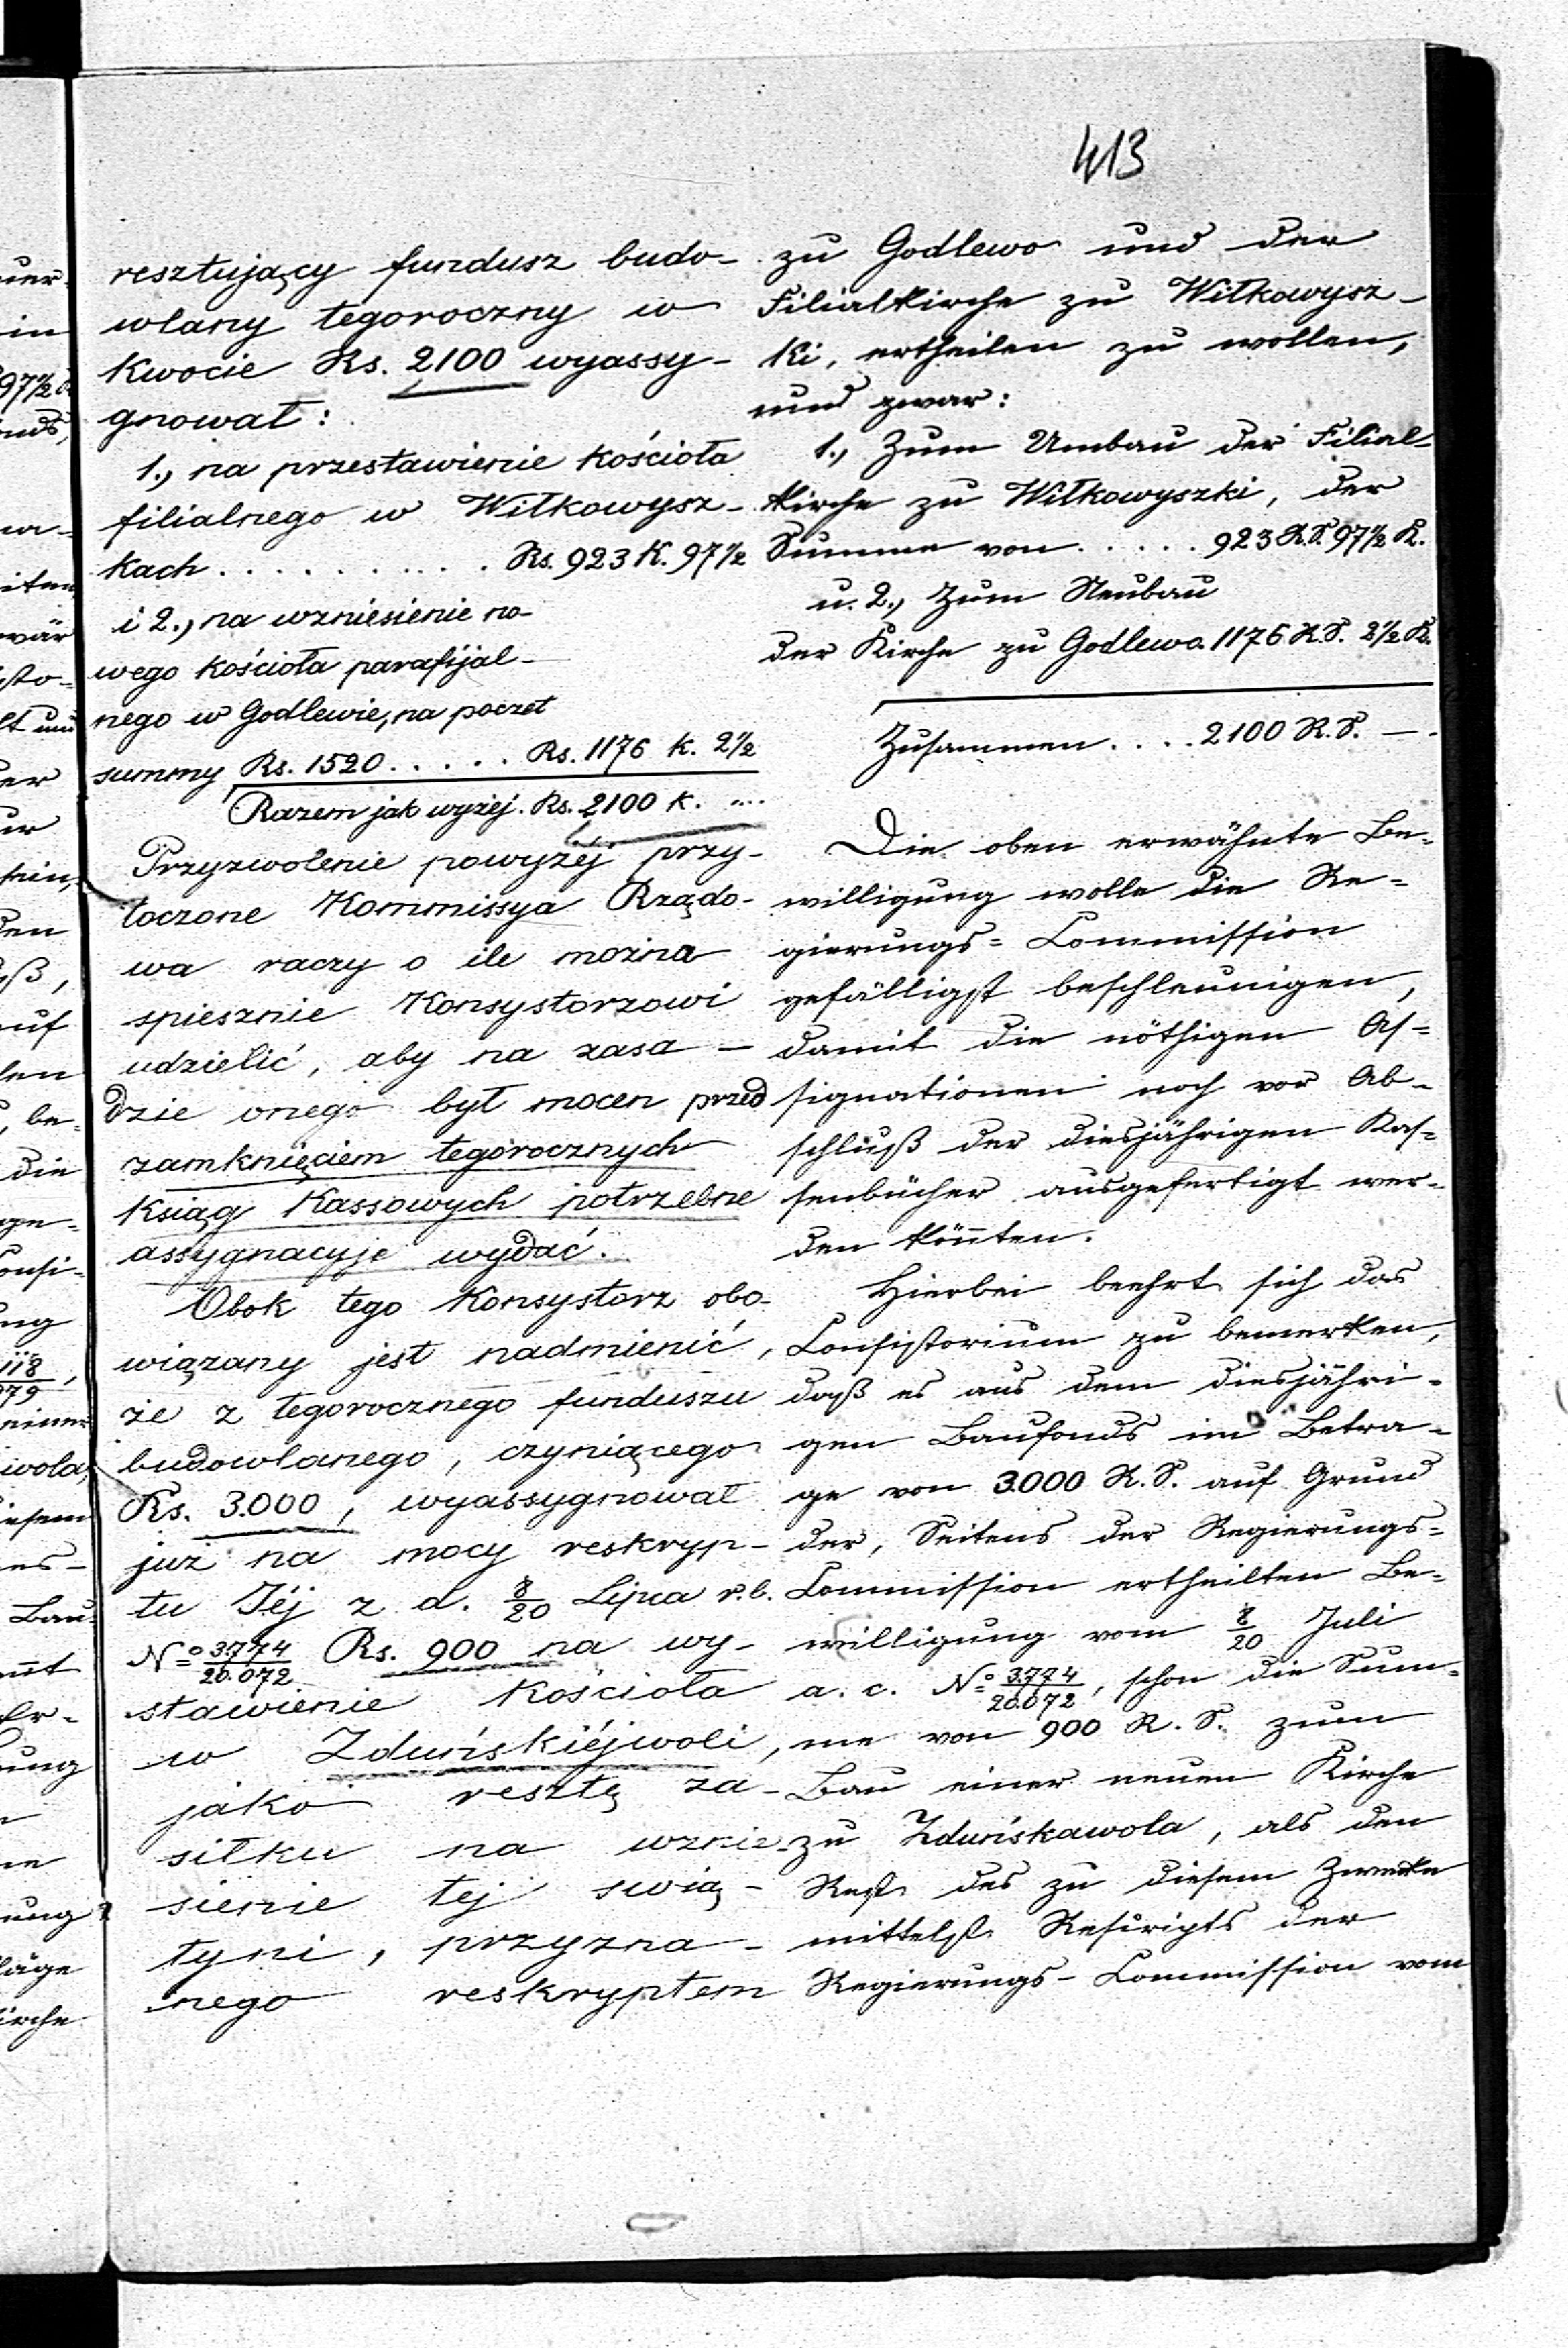 413
resztujący fundusz budo-
wlany tegoroczny w
Kwocie Rs. 2100 wyassy-
gnował:
1., na przestawienie kościoła
filialnego w Wiłkowysz-
kach . . . . . . . . . . Rs. 923 K. 97½
i 2., na wzniesienie no-
wego kościoła parafijal-
nego w Godlewie, na poczet
summy Rs. 1520 . . . . . Rs. 1176 k. 2½
Razem jak wyżej. Rs. 2100 k. ....
Przyzwolenie powyżéj przy-
toczone Kommissya Rządo-
wa raczy o ile można
spiesznie Konsystorzowi
udzielić, aby na zasa-
dzie onego był mocen przed
zamknięciem tegorocznych
Ksiąg Kassowych potrzebne
assygnacyje wydać.
Obok tego Konsystorz obo-
wiązany jest nadmienić,
że z tegorocznego funduszu
budowlanego, czyniącego
Rs. 3.000, wyassygnował
już na mocy reskryp-
tu Jéj z d. 8/20 Lipca r.b.
No 3.774/20.072 Rs. 900 na wy-
stawienie Kościoła
w Zduńskiéjwoli,
jako resztę za-
siłku na wznie-
sienie tej świą-
tyni, przyzna-
nego reskryptem
zu Godlewo und der
Filialkirche zu Wiłkowysz-
ki, ertheilen zu wollen,
und zwar:
1., Zum Umbau der Filial-
kirche zu Wiłkowyszki, der
Summe von . . . . . 923 R.S. 97½ K.
u. 2., Zum Neubau
der Kirche zu Godlewo. 1176 R.S. 2½ K.
Zusammen. . . . 2100 R.S. — .
Die oben erwähnte Be-
willigung wolle die Re-
gierungs-Commission
gefälligst beschleunigen,
damit die nöthigen As-
signationen noch vor Ab-
schluß der diesjährigen Kas-
senbücher ausgefertigt wer-
den könnten.
Hierbei beehrt sich das
Consistorium zu bemerken,
daß es aus dem diesjähri-
gen Baufonds im Betra-
ge von 3.000 R.S. auf Grund
der, Seitens der Regierungs-
Commission ertheilten Be-
willigung vom 8/20 Juli
a. c. No 3.774/20.072, schon die Sum-
me von 900 R.S. zum
Bau einer neuen Kirche
zu Zduńskawola, als den
Rest des zu diesem Zwecke
mittelst Rescripts der
Regierungs-Commission vom